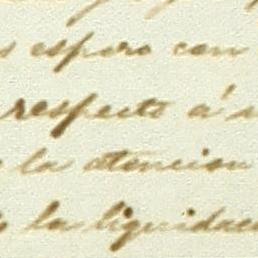 espero con
respecto á
la atencion
la liquidac